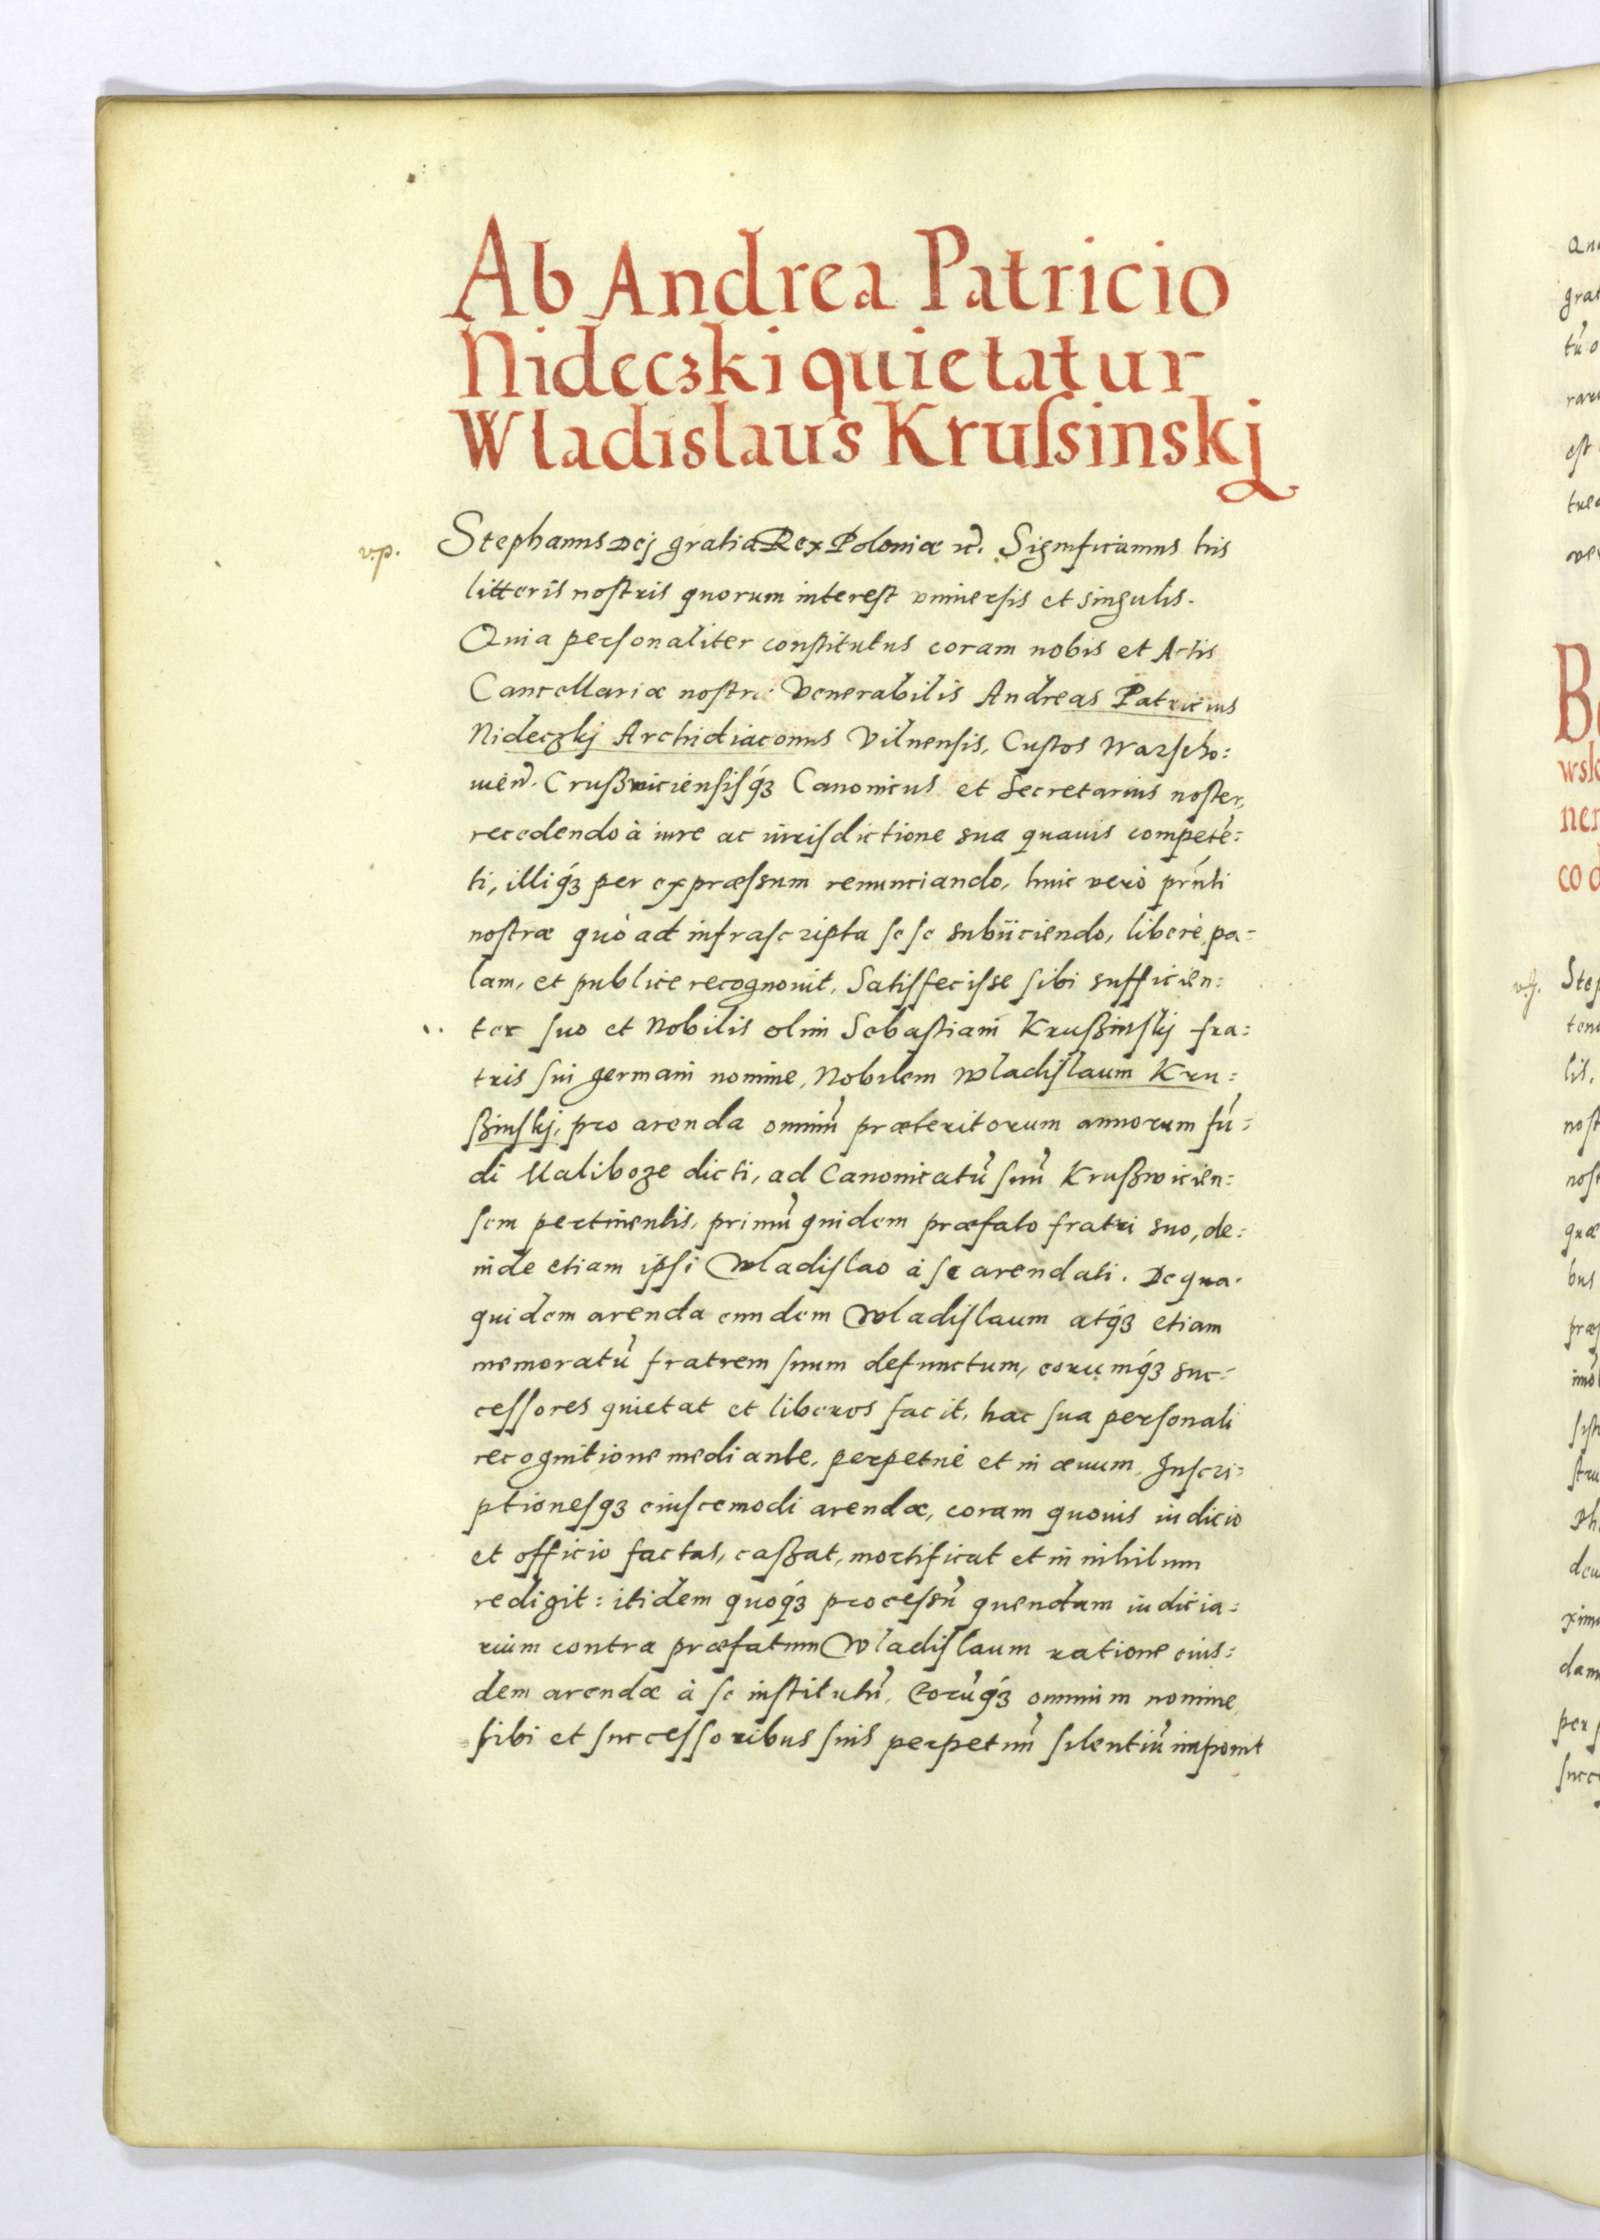 Ab Andrea Patricio
Nideczki quietatur
Wladislaus Krusſinskj
v.p.
Stephanus Dej gratia Rex Poloniæ etc̃. Significamus his
litteris nostris quorum interest vniuersis et singulis.
Quia perſonaliter constitutus coram nobis et Actis
Cancellariæ nostræ Venerabilis Andreas Patricius
Nideczkj Archidiaconus Vilnensis, Custos Warſcho:
uien̄. Crußwiciensisq́ꝫ Canonicus et Secretarius noster,
recedendo à iure ac iurisdictione sua quauis competē:
ti, illiq́ꝫ per expræſsum renunciando, huic verò prn̄ti
nostræ quò ad infraſcripta ſe ſe subijciendo, liberè pa:
lam, et publice recognouit, Satisfeciſse ſibi sufficien:
ter ſuo et Nobilis olim Sebaſtiani Krußinſkj fra:
tris ſui germani nomine, Nobilem Wladiſlaum Kru:
ßinſkj, pro arenda omniū præteritorum annorum fū:
di Maliboze dicti, ad Canonicatū ſuū Krußwicien:
ſem pertinentis, primū quidem præfato fratri suo, de:
inde etiam ipſi Wladiſlao à ſe arendati. De qua
quidem arenda eundem Wladiſlaum atq́ꝫ etiam
memoratū fratrem ſuum defunctum, eorumq́ꝫ suc:
ceſſores quietat et liberos facit, hac ſua perſonali
recognitione mediante, perpetuè et in æuum, Inſcri:
ptioneſqꝫ eiuſcemodi arendæ, coram quouis iudicio
et officio factas, caßat, mortificat et in nihilum
redigit: itidem quoq́ꝫ proceſsū quendam iudicia:
rium contra præfatum Wladiſlaum ratione eius:
dem arendæ à ſe inſtitutū, Eorūq́ꝫ omnium nomine
ſibi et ſucceſſoribus ſuis perpetuū ſilentiū imponit